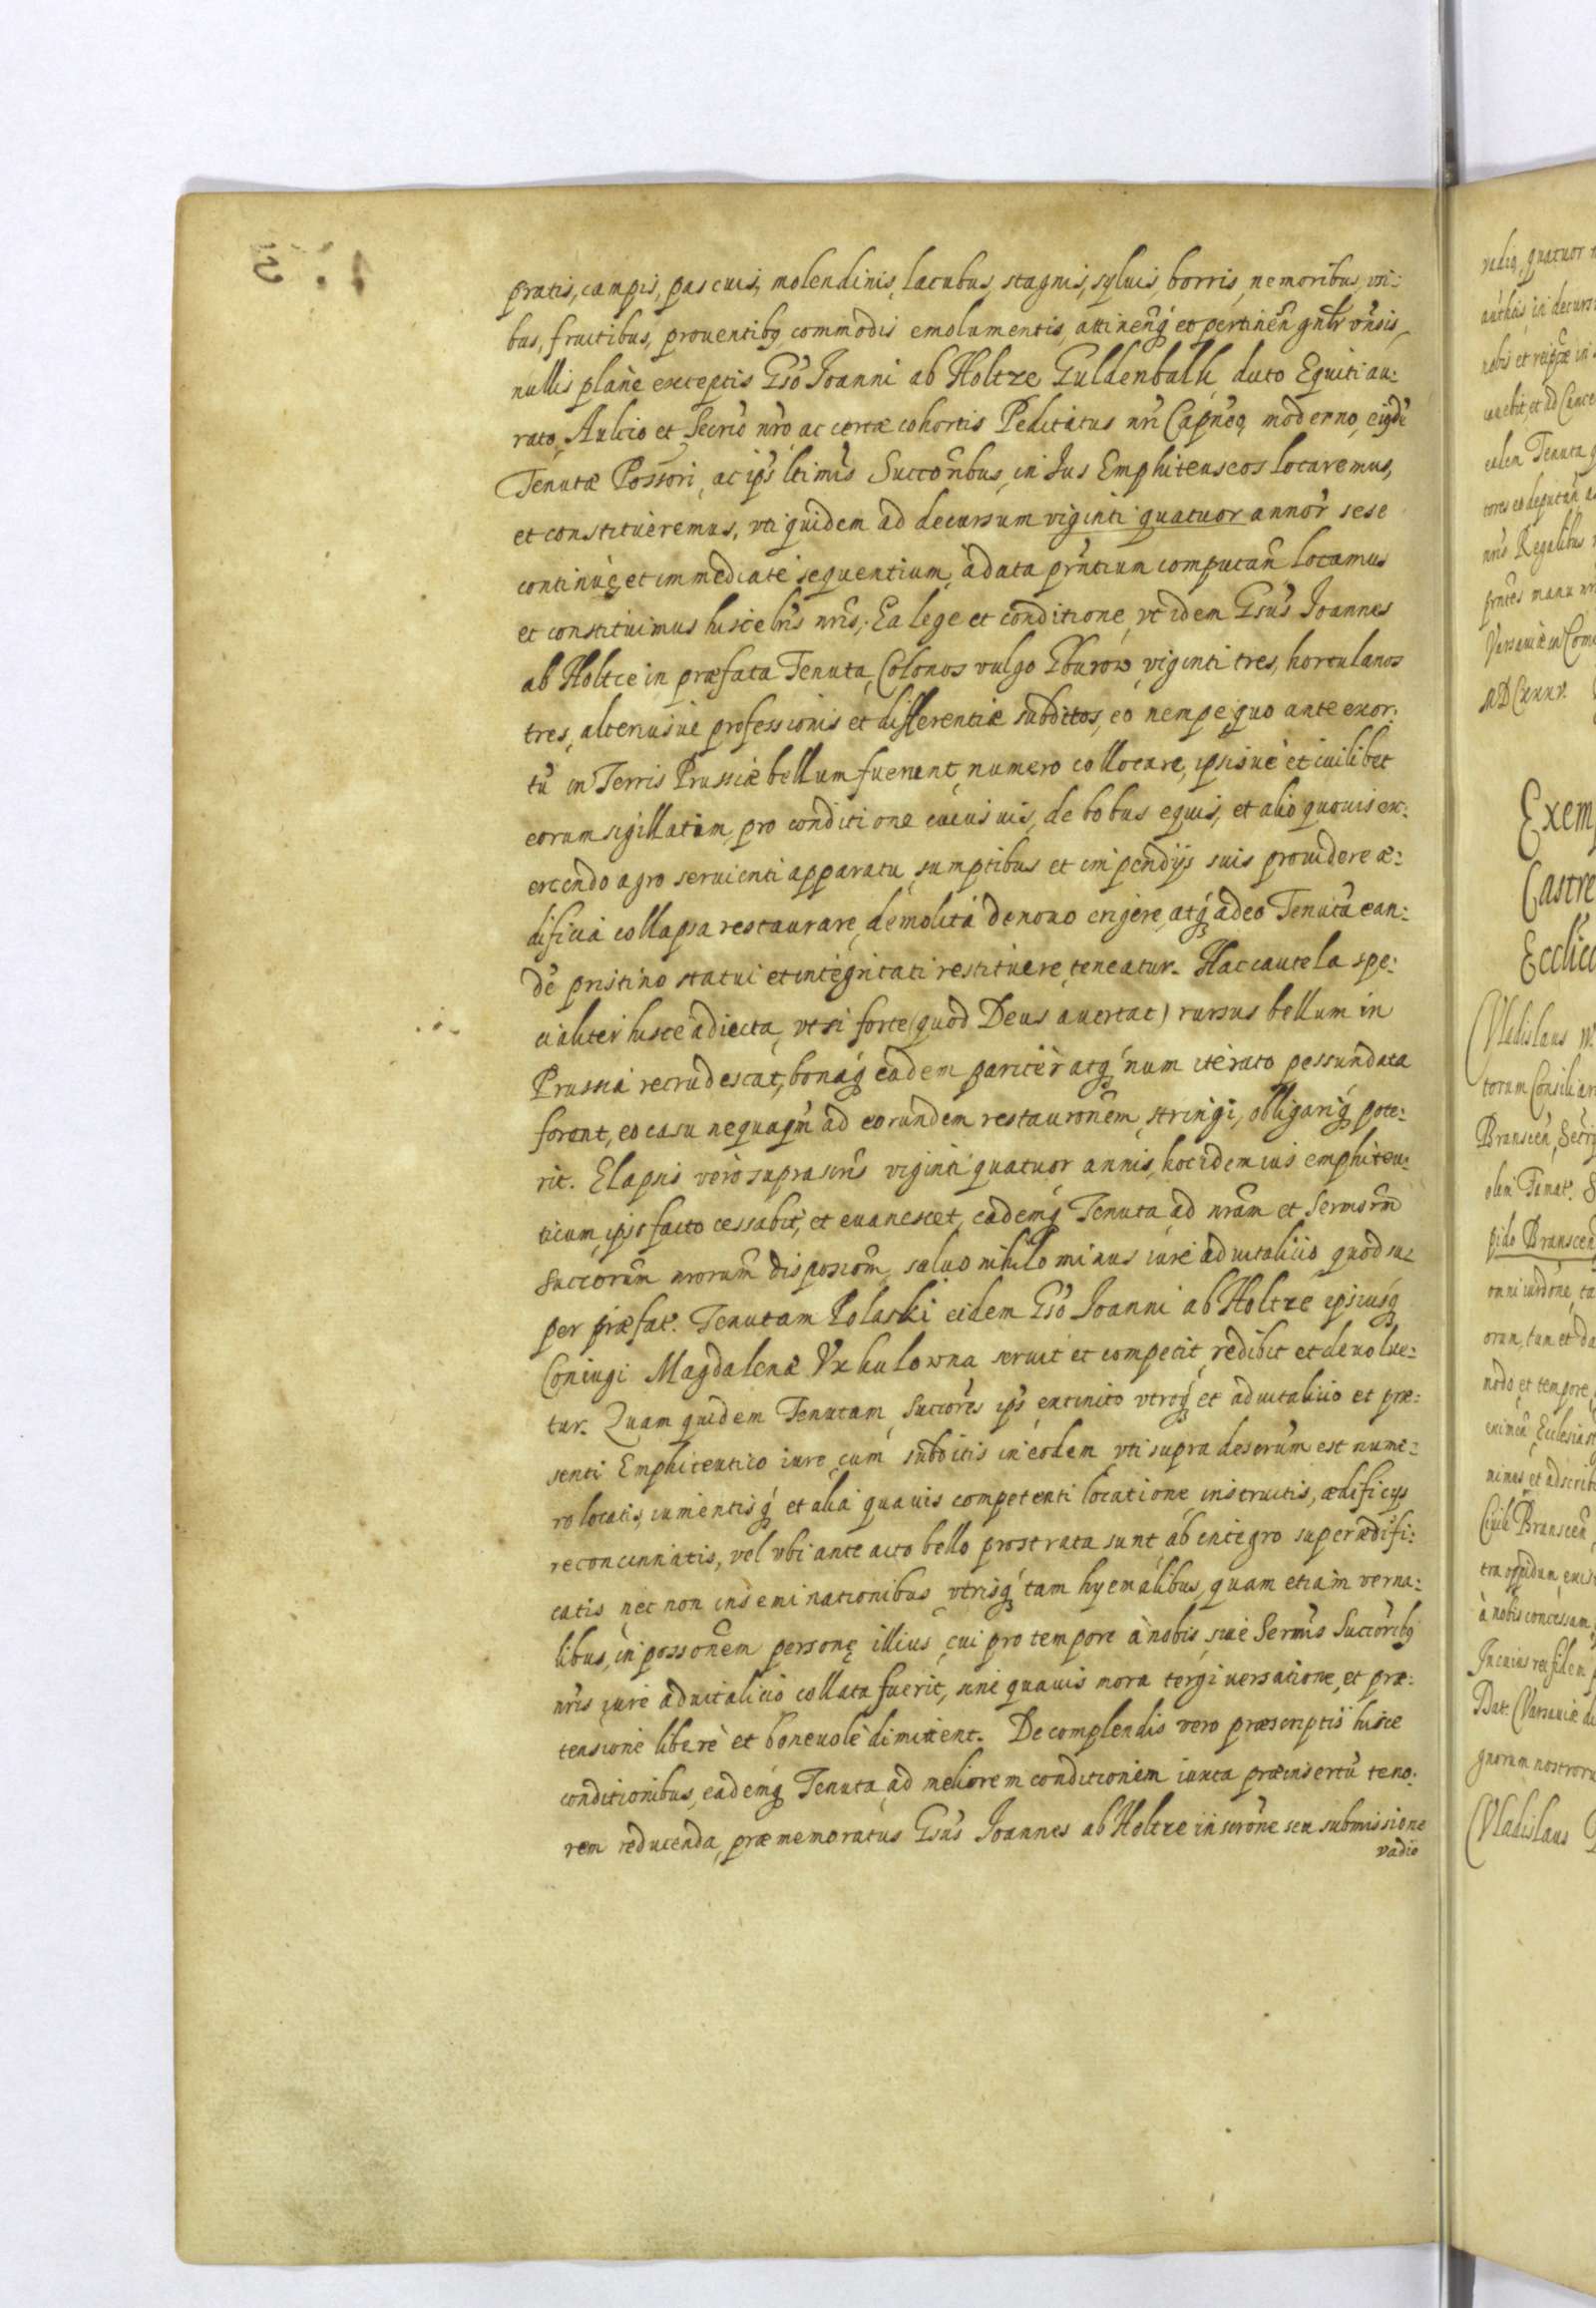 pratis, campis, pascuis, molendinis, lacubus, stagnis, syluis, borris, nemoribus, vti:
bus, fructibus, prouentibq commodis emolumentis, attinenq et pertinen gnlr vnsis,
nullis plane exceptis Gso Joanni ab Holtze Guldenbalk dicto Equiti au:
rato, Aulcio et Secrio nro ac certæ cohortis Peditatus nri Capneo, moderno, eiusde
Tenutæ Possori, ac ips ltimis Succoribus, in Jus Emphiteuseos locaremus,
et constitueremus, vti quidem ad decursum viginti quatuor annor sese
continue, et immediate sequentium, a data prntium computan locamus
et constituimus hisce lris nris; Ea lege et conditione, vt idem Gsus Joannes
ab Holtze in præfata Tenuta, Colonos vulgo Gburow viginti tres, hortulanos
tres, alteriusue professionis et differentiæ subditos, eo nempe quo ante exor:
tu in Terris Prussiæ bellum fuerant, numero collocare, ipsisue et cuilibet
eorum sigillatim, pro conditione cuiusuis, de bobus equis, et alio quouis ex:
ercendo agro seruienti apparatu, sumptibus et impendijs suis prouidere æ:
dificia collapsa restaurare, demolita denouo erigere, atq adeo Tenuta ean:
de pristino statui et integritati restituere teneatur. Hac cautela spe:
cialiter hisce adiecta, vt si forte (quod Deus auertat) rursus bellum in
Prussia recrudescat, bonaq eadem pariter atq num iterato pessundata
forent, eo casu nequaqm ad eorundem restauronem, stringi, obligariq pote:
rit. Elapsis vero suprascris viginti quatuor annis, hoc idem ius emphiteu:
ticum, ipso facto cessabit, et euanescet, eademq Tenuta ad nram et Sermorm
Succorum nrorum disposiom, saluo nihilo minus iure aduitalicio quod su:
per præfat. Tenutam Polaski eidem Gso Joanni ab Holtze ipsiusq
Coniugi Magdalenæ Vxkulowna seruit et competit, redibit et deuolue:
tur. Quam quidem Tenutam, Succores ips extincto vtroq et aduitalicio et præ:
senti Emphiteutico iure, cum subditis in eodem vti supra descrum est nume:
ro locatis, iumentisq et alia quauis competenti locatione, instructis, ædificijs
reconcinnatis, vel vbi ante acto bello prostrata sunt, ab integro superædifi:
catis nec non inseminationibus vtrisq tam hyemalibus, quam etiam verna:
libus, in possonem personę illius, cui pro tempore à nobis, siue Sermis Succoribq
nris iure aduitalicio collata fuerit, sine quauis mora tergiuersatione, et præ:
tensione libere et beneuole dimittent. De complendis vero præscriptis hisce
conditionibus, eademq Tenuta ad meliorem conditionem iuxta præinsertu teno:
rem reducenda, præmemoratus Gsus Joannes ab Holtze inscrone seu submissione
vadio
Exem
Castre
Vladislaus
Vladislaus